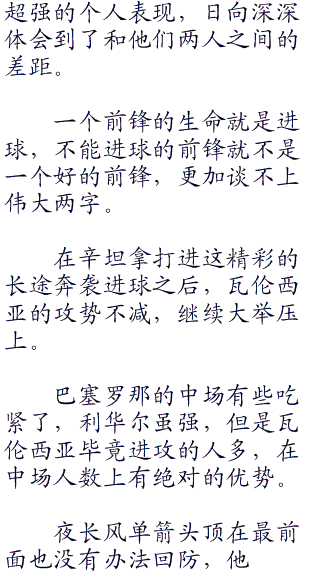 超强的个人表现，日向深深
体会到了和他们两人之间的
差距。
一个前锋的生命就是进
球，不能进球的前锋就不是
一个好的前锋，更加谈不上
伟大两字。
在辛坦拿打进这精彩的
长途奔袭进球之后，瓦伦西
亚的攻势不减，继续大举压
上。
巴塞罗那的中场有些吃
紧了，利华尔虽强，但是瓦
伦西亚毕竟进攻的人多，在
中场人数上有绝对的优势。
夜长风单箭头顶在最前
面也没有办法回防，他